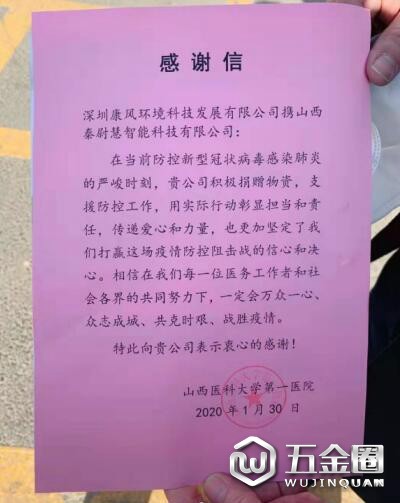 感谢信
深圳康风环境科技发展有限公司携山西
秦尉慧智能科技有限公司：
在当前防控新型冠状病毒感染肺炎
的严峻时刻，贵公司积极捐赠物资，支
援防控工作，用实际行动彰显担当和责
任，传递爱心和力量，也更加坚定了我
们打赢这场疫情防控阻击战的信心和决
心。相信在我们每一位医务工作者和社
会各界的共同努力下，一定会万众一心、
众志成城、共克时艰、战胜疫情。
特此向贵公司表示衷心的感谢！
山西医科大学第一医院
2020年1月30日
五金圈
WUJINQUAN